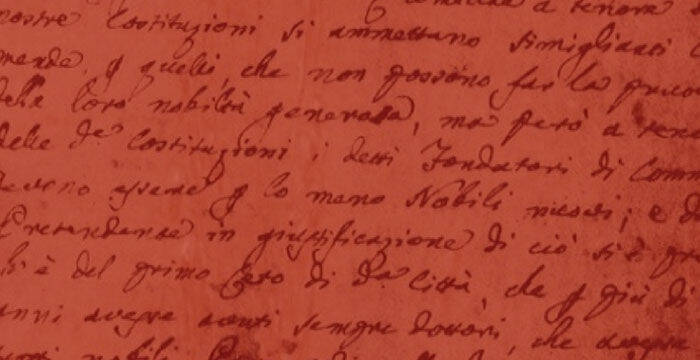 a tenora
nostre Costituzioni si ammettano simiglianti
mande, p quelli, che non possono far la pruo
della loro nobiltà generosa, ma però a ten
delle de Costituzioni i detti Fondatori di Comm
devono essere p lo meno Nobili nicosi; e d
Pretendente in giustificazione di ciò si è pr
è del primo Ceto di da Città, che p più di
anni avesse avuti sempre dottori, che avesse
nobili